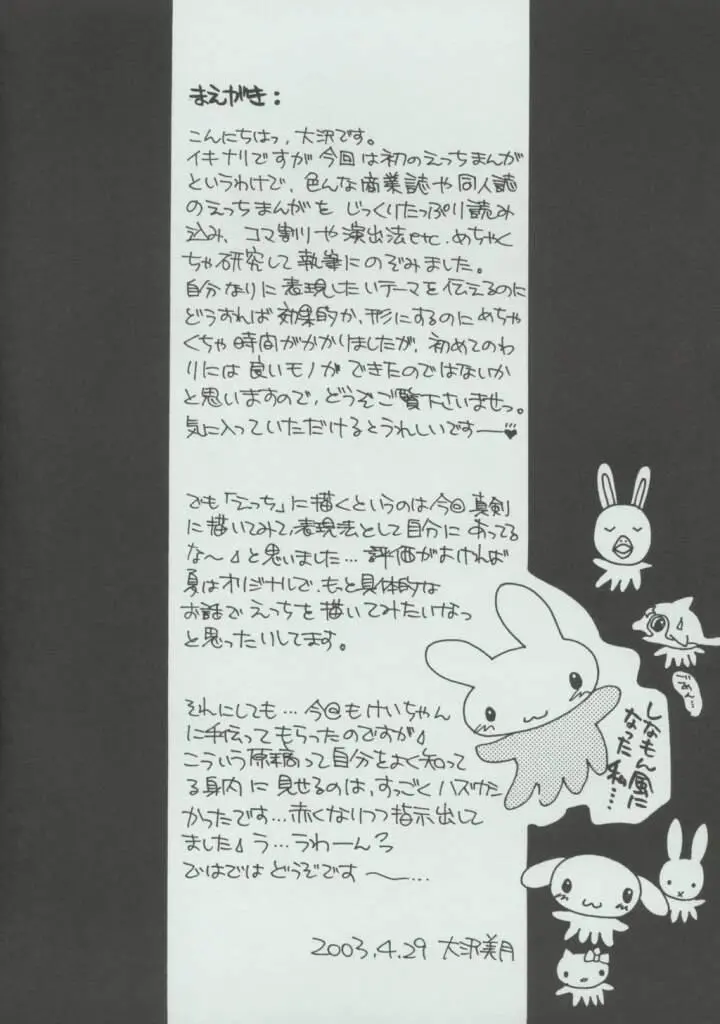 まえがき:
こんにちはっ、大沢です。
イキナリですが今回は初のえっちまんが
というわけで、色んな商業誌や同人誌
のえっちまんがを じっくりたっぷり読み
込み、コマ割りや演出法etc.めちゃく
ちゃ研究して執筆にのぞみました。
自分なりに表現したいテーマを伝えるのに
どうすれば効果的か、形にするのにめちゃ
くちゃ時間がかかりましたが、初めてのわ
りには良いモノができたのではないか
と思いますので、どうぞご覧下さいませっ。
気に入っていただけるとうれしいです――♥
でも「えっち」に描くというのは今回真剣
に描いてみて、表現法として自分にあってる
な〜♪と思いました…評価がよければ
夏はオリジナルで、もっと具体的な
お話でえっちを描いてみたいなっ
と思ったりしてます。
それにしても…今回もけいちゃん
に手伝ってもらったのですが♪
こういう原稿って自分をよく知って
る身内に見せるのは、すっごくハズかし
かったです…赤くなりつつ指示出して
ました♪う…うわーんろ
ではでは どうぞです〜…
2003.4.29 大沢美月
ごめん…
しなもん風に
なった私…